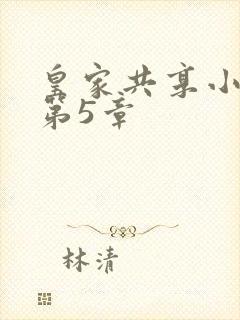 皇家共享小
第5章
林清